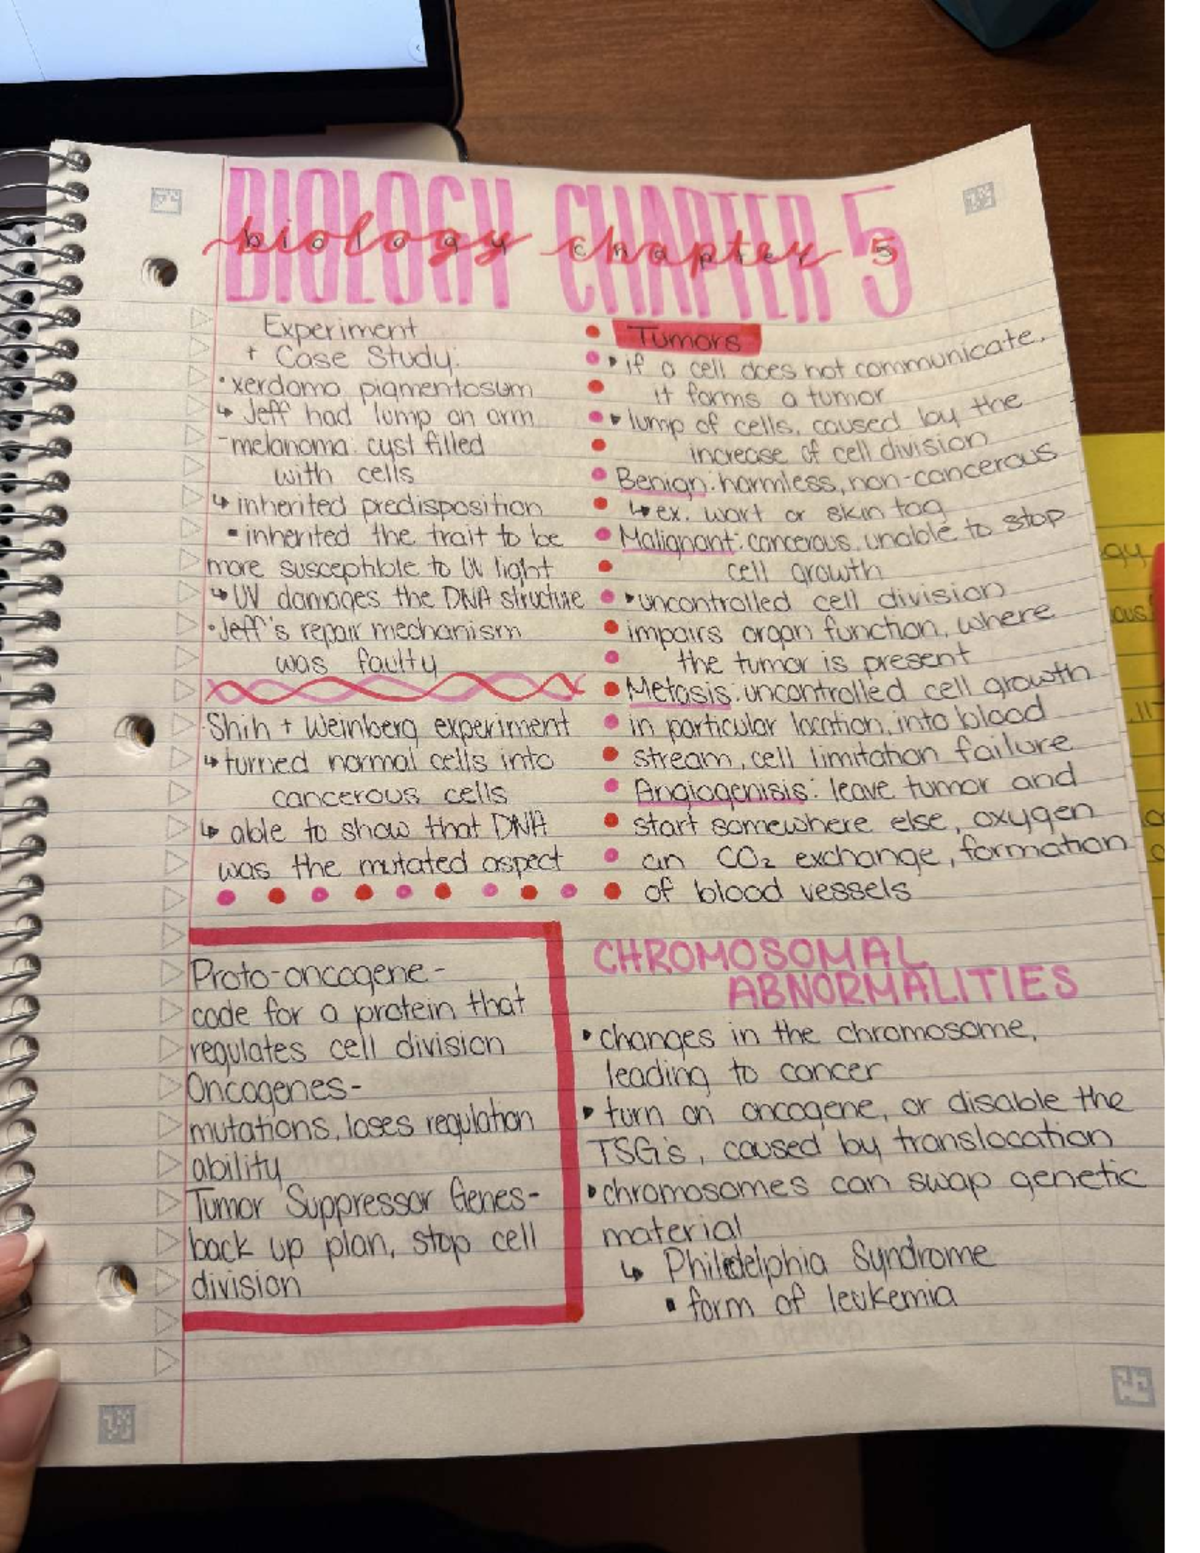 BIOLOGY CHAPTER 5
biology chapter 5
Experiment
+ Case Study:
•xerdoma pigmentosum
↳ Jeff had lump on arm
-melanoma: cyst filled
with cells
↳ inherited predisposition
▪ inherited the trait to be
more susceptible to UV light
↳ UV damages the DNA structure
•Jeff's repair mechanism
was faulty
Shih + Weinberg experiment
↳ turned normal cells into
cancerous cells
↳ able to show that DNA
was the mutated aspect
Proto-oncogene-
code for a protein that
regulates cell division
Oncogenes-
mutations, loses regulation
ability
Tumor Suppressor Genes-
back up plan, stop cell
division
Tumors
‣ if a cell does not communicate,
it forms a tumor
‣ lump of cells, caused by the
increase of cell division
Benign: harmless, non-cancerous
↳ ex. wart or skin tag
Malignant: cancerous, unable to stop
cell growth
‣ uncontrolled cell division
impairs organ function, where
the tumor is present
Metasis: uncontrolled cell growth
in particular location, into blood
stream, cell limitation failure
Angiogenisis: leave tumor and
start somewhere else, oxygen
an CO₂ exchange, formation
of blood vessels
CHROMOSOMAL
ABNORMALITIES
‣ changes in the chromosome,
leading to cancer
‣ turn on oncogene, or disable the
TSG's, caused by translocation
‣ chromosomes can swap genetic
material
↳ Philedelphia Syndrome
▪ form of leukemia